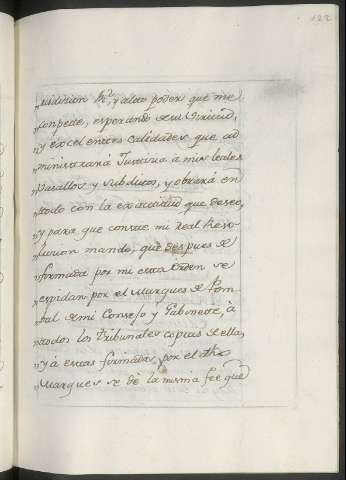 122
„risdiccion R.l, y alto poder que me
„compete, esperando de su Virtud,
„y excelentes calidades que ad
„ministrará Justicia a mis leales
„Vasallos y subditos, y obrará en
„todo con la exactitud que deseo,
„y para que conste mi Real Reso-
„lucion mando, que despues de
„firmada por mi esta Orden se
„expidan por el Marques de Pom-
„bal de mi Consejo y Gabinete, à
„todos los tribunales copias de ella,
„y à estas firmadas por el dho
„Marques se dè la misma feè que